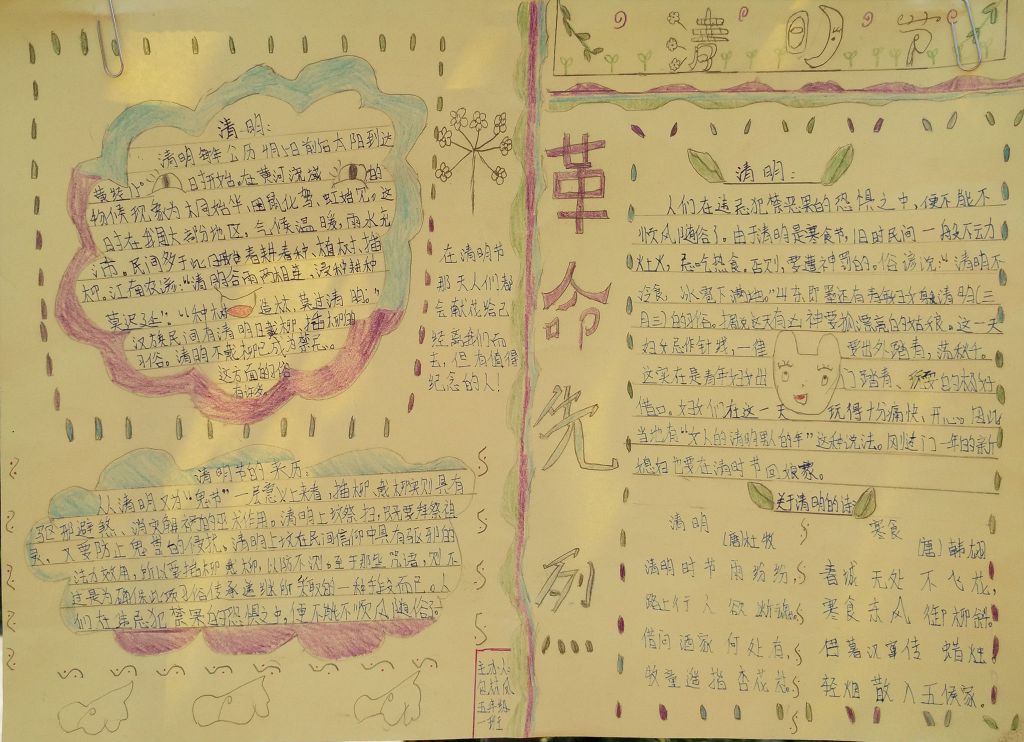 清明节
清明:
清明每年公历4月5日前后太阳到达
黄经15°
日时开始。在黄河流域
的
物候现象为
气候温暖,雨水充
植树、插
柳。江南农谚:“清明谷雨两相连,浸种耕种
莫迟延”。“
造林,莫过清明。”
汉族民间有清明日戴柳、插柳的
习俗。清明不戴柳已成为禁忌。
这方面的习俗
在清明节
那天人们都
会献花给己
经离我们而
去,但有值得
纪念的人!
清明节的来历:
人清明又为“鬼节”一层意义上来看,插柳、戴柳实则具有
驱邪避煞、消灾解
的巫术作用。清明上坟祭扫,既要拜祭祖
灵,又要防止鬼
的侵扰,清明上坟在民间信仰中具有驱邪的
法力效用,所以要插柳戴柳,以防不测。至于那些咒语,则不
过是为确保此项习俗传承
继所采取的一种手段而已。人
们在违忌犯禁果的恐惧之中,便不能不顺风随俗了。
主办人:
五年级
一班
革命先烈
清明:
人们在违忌犯禁恶果的恐惧之中,便不能不
顺风随俗了。由于清明是寒食节,旧时民间一般不去动
灶火,忌吃热食,否则,要遭神罚的。俗谚说:“清明不
冷食,冰雹下满地。”山东即墨还有青年妇女躲清明(三
月三)的习俗。据说这天有凶神要抓漂亮的姑娘。这一天
妇女忌作针线,一准
要出外踏青,荡秋千。
这实在是青年妇女出
门踏青、玩耍的极好
借口。妇女们在这一天
玩得十分痛快、开心。因此
当地有“女人的清明男人的年”这种说法。刚过门一年的新
媳妇也要在清时节回娘家。
关于清明的诗
清明
(唐)杜牧
清明时节雨纷纷,
路上行人欲断魂。
借问酒家何处有,
牧童遥指杏花
寒食
(唐)韩翃
春城无处不飞花,
寒食东风御柳斜。
日暮汉宫传蜡烛
轻烟散入五侯家。